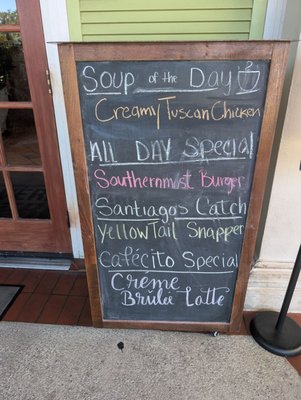 Soup of the Day
Creamy Tuscan Chicken
All DAY Special
Southernmost Burger
Santiagos Catch
Yellow Tail Snapper
Cafécito Special
Créme
Brûlée Latte